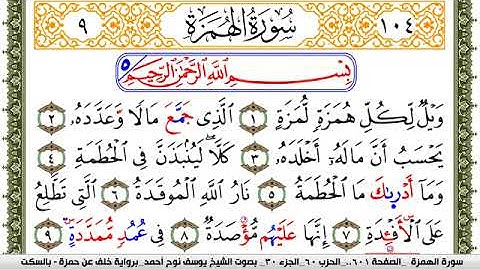 ١٠٤ سُورَةُ الْهُمَزَةِ ٩
بِسْمِ اللَّهِ الرَّحْمَٰنِ الرَّحِيمِ ٥
وَيْلٌ لِّكُلِّ هُمَزَةٍ لُّمَزَةٍ ١ الَّذِى جَمَّعَ مَالًا وَعَدَّدَهُۥ ٢
يَحْسِبُ أَنَّ مَالَهُۥٓ أَخْلَدَهُۥ ٣ كَلَّا ۖ لَيُنۢبَذَنَّ فِى الْحُطَمَةِ ٤
وَمَآ أَدْرِىٰكَ مَا الْحُطَمَةُ ٥ نَارُ اللَّهِ الْمُوقَدَةُ ٦ الَّتِى تَطَّلِعُ
عَلَى الْأَفْـِٔدَةِ ٧ إِنَّهَا عَلَيْهُم مُّؤْصَدَةٌ ٨ فِى عُمُدٍ مُّمَدَّدَةٍۭ ٩
سورة الهمزة _الصفحة ٦٠١_ الحزب ٦٠_الجزء ٣٠_ بصوت الشيخ يوسف نوح أحمد_برواية خلف عن حمزة - بالسكت